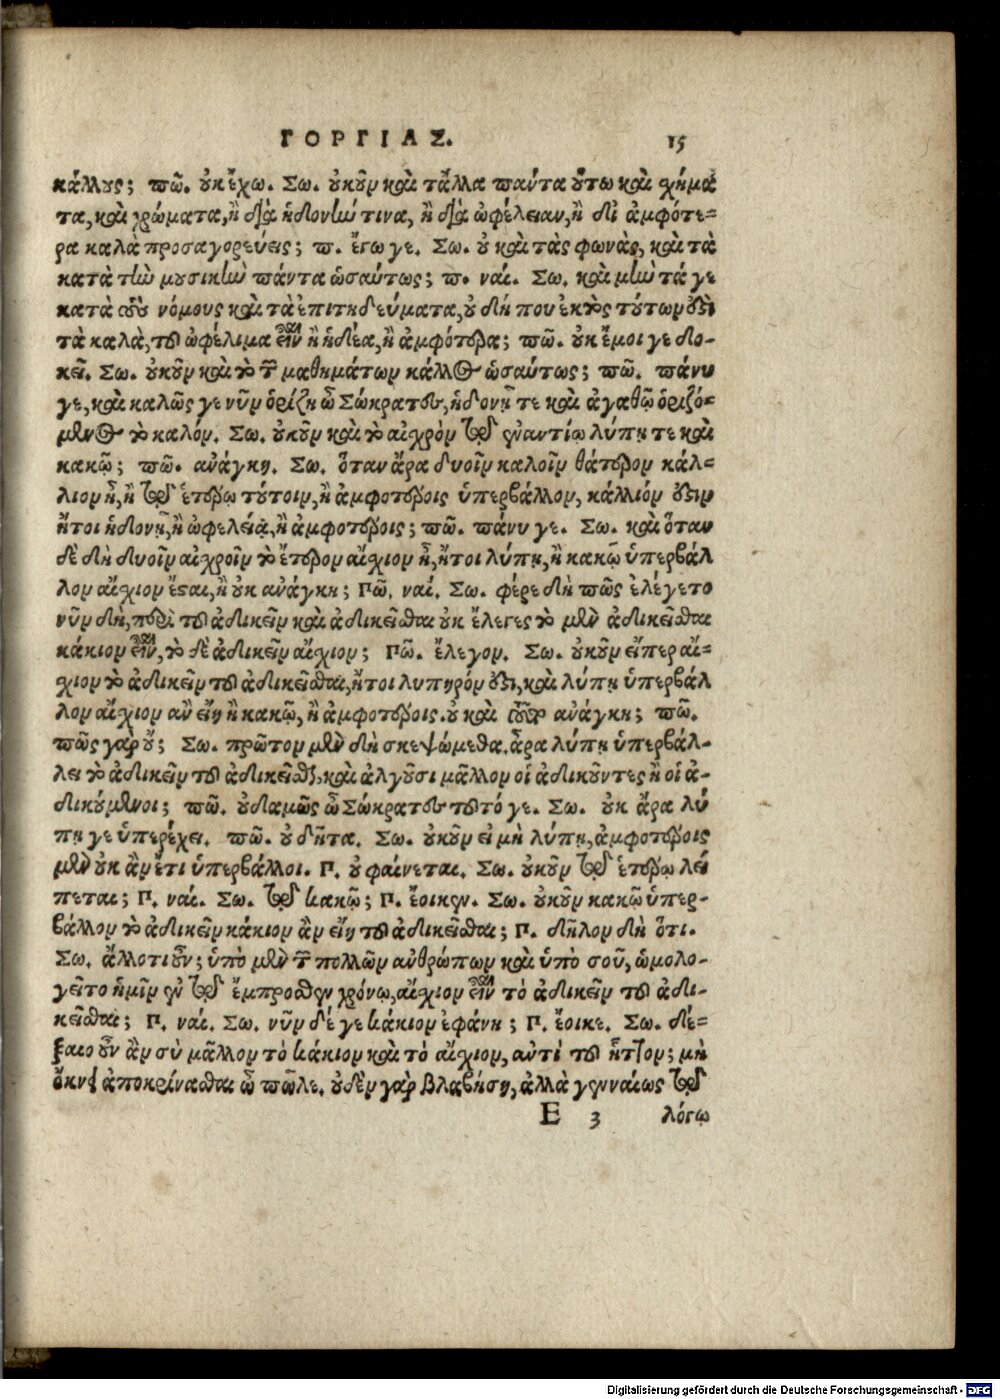 ΓΟΡΓΙΑΣ. 15
κάλλους; πῶ. οὐκ ἔχω. Σω. οὐκοῦν καὶ τἆλλα πάντα οὕτω καὶ χήμα
τα, καὶ χρώματα, ἢ διὰ ἡδονὴν τινα, ἢ διὰ ὠφέλειαν, ἢ δι ἀμφότε-
ρα καλὰ προσαγορεύεις; π. ἔγω γε. Σω. οὐ καὶ τὰς φωνὰς, καὶ τὰ
κατὰ τὴν μουσικὴν πάντα ὡσαύτως; π. ναί. Σω. καὶ μὴν τά γε
κατὰ τοὺς νόμους καὶ τὰ ἐπιτηδεύματα, οὐ δή που ἐκτὸς τούτων ἐστὶ
τὰ καλὰ, τοῦ ὠφέλιμα εἶναι ἢ ἡδέα, ἢ ἀμφότερα; πῶ. οὐκ ἔμοι γε δο-
κεῖ. Σω. οὐκοῦν καὶ τὸ τῶν μαθημάτων κάλλος ὡσαύτως; πῶ. πάνυ
γε, καὶ καλῶς γε νῦν ὁρίζῃ ὦ Σώκρατες, ἡδονῇ τε καὶ ἀγαθῷ ὁριζό-
μενος τὸ καλόν. Σω. οὐκοῦν καὶ τὸ αἰχρὸν τῷ ἐναντίῳ λύπῃ τε καὶ
κακῷ; πῶ. ἀνάγκη. Σω. ὅταν ἄρα δυοῖν καλοῖν θάτερον κάλ-
λιον ᾖ, ἢ τῷ ἑτέρῳ τούτοιν, ἢ ἀμφοτέροις ὑπερβάλλον, κάλλιόν ἐστιν
ἤτοι ἡδονῇ, ἢ ὠφελείᾳ, ἢ ἀμφοτέροις; πῶ. πάνυ γε. Σω. καὶ ὅταν
δὲ δὴ δυοῖν αἰχροῖν τὸ ἕτερον αἴχιον ᾖ, ἤτοι λύπῃ, ἢ κακῷ ὑπερβάλ
λον αἴχιον ἔσται, ἢ οὐκ ἀνάγκη; Πῶ. ναί. Σω. φέρε δὴ πῶς ἐλέγετο
νῦν δὴ, περὶ τοῦ ἀδικεῖν καὶ ἀδικεῖσθαι οὐκ ἔλεγες τὸ μὲν ἀδικεῖσθαι
κάκιον εἶναι, τὸ δὲ ἀδικεῖν αἴχιον; Πῶ. ἔλεγον. Σω. οὐκοῦν εἴπερ αἴ-
χιον τὸ ἀδικεῖν τοῦ ἀδικεῖσθαι, ἤτοι λυπηρόν ἐστι, καὶ λύπῃ ὑπερβάλ
λον αἴχιον ἂν εἴη ἢ κακῷ, ἢ ἀμφοτέροις. οὐ καὶ τοῦτο ἀνάγκη; πῶ.
πῶς γὰρ οὔ; Σω. πρῶτον μὲν δὴ σκεψώμεθα. ἆρα λύπῃ ὑπερβάλ-
λει τὸ ἀδικεῖν τοῦ ἀδικεῖσθαι, καὶ ἀλγοῦσι μᾶλλον οἱ ἀδικοῦντες ἢ οἱ ἀ-
δικούμενοι; πῶ. οὐδαμῶς ὦ Σώκρατες τοῦτό γε. Σω. οὐκ ἄρα λύ
πῃ γε ὑπερέχει. πῶ. οὐ δῆτα. Σω. οὐκοῦν εἰ μὴ λύπῃ, ἀμφοτέροις
μὲν οὐκ ἂν ἔτι ὑπερβάλλοι. Π. οὐ φαίνεται. Σω. οὐκοῦν τῷ ἑτέρῳ λεί
πεται; Π. ναί. Σω. τῷ κακῷ; Π. ἔοικεν. Σω. οὐκοῦν κακῷ ὑπερ-
βάλλον τὸ ἀδικεῖν κάκιον ἂν εἴη τοῦ ἀδικεῖσθαι; Π. δῆλον δὴ ὅτι.
Σω. ἄλλο τι οὖν; ὑπὸ μὲν τῶν πολλῶν ἀνθρώπων καὶ ὑπὸ σοῦ, ὡμολο-
γεῖτο ἡμῖν ἐν τῷ ἔμπροσθεν χρόνῳ, αἴχιον εἶναι τὸ ἀδικεῖν τοῦ ἀδι-
κεῖσθαι; Π. ναί. Σω. νῦν δέ γε κάκιον ἐφάνη; Π. ἔοικε. Σω. δέ-
ξαιο οὖν ἂν σὺ μᾶλλον τὸ κάκιον καὶ τὸ αἴχιον, αὐτὶ τοῦ ἧττον; μὴ
ὄκνει ἀποκρίνασθαι ὦ πῶλε. οὐδὲν γὰρ βλαβήσῃ, ἀλλὰ γενναίως τῷ
E 3 λόγῳ
Digitalisierung gefördert durch die Deutsche Forschungsgemeinschaft - DFG